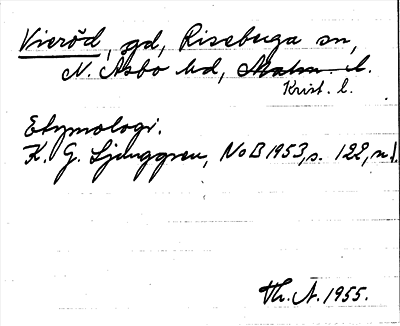 Vieröd, gd, Risebuga sn,
N. Åsbo hd, Malm. l.
Krist. l.
Etymologi.
K. G. Ljunggren, NoB 1953, s. 122, n. 1.
Th. A. 1955.